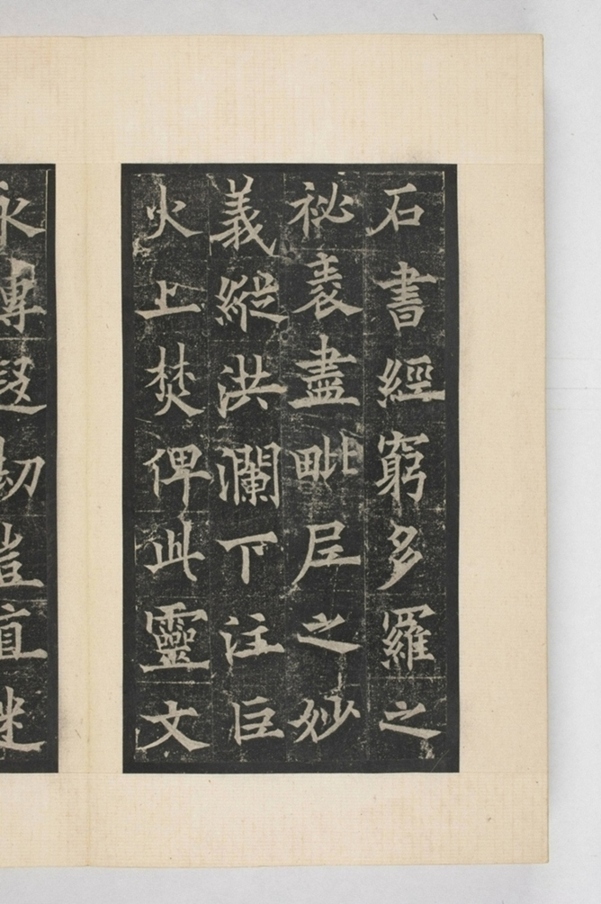 石書經窮多羅之
祕袠盡毗尼之妙
義縱洪瀾下注巨
火上焚俾此靈文
永傳遐劫豈直迷